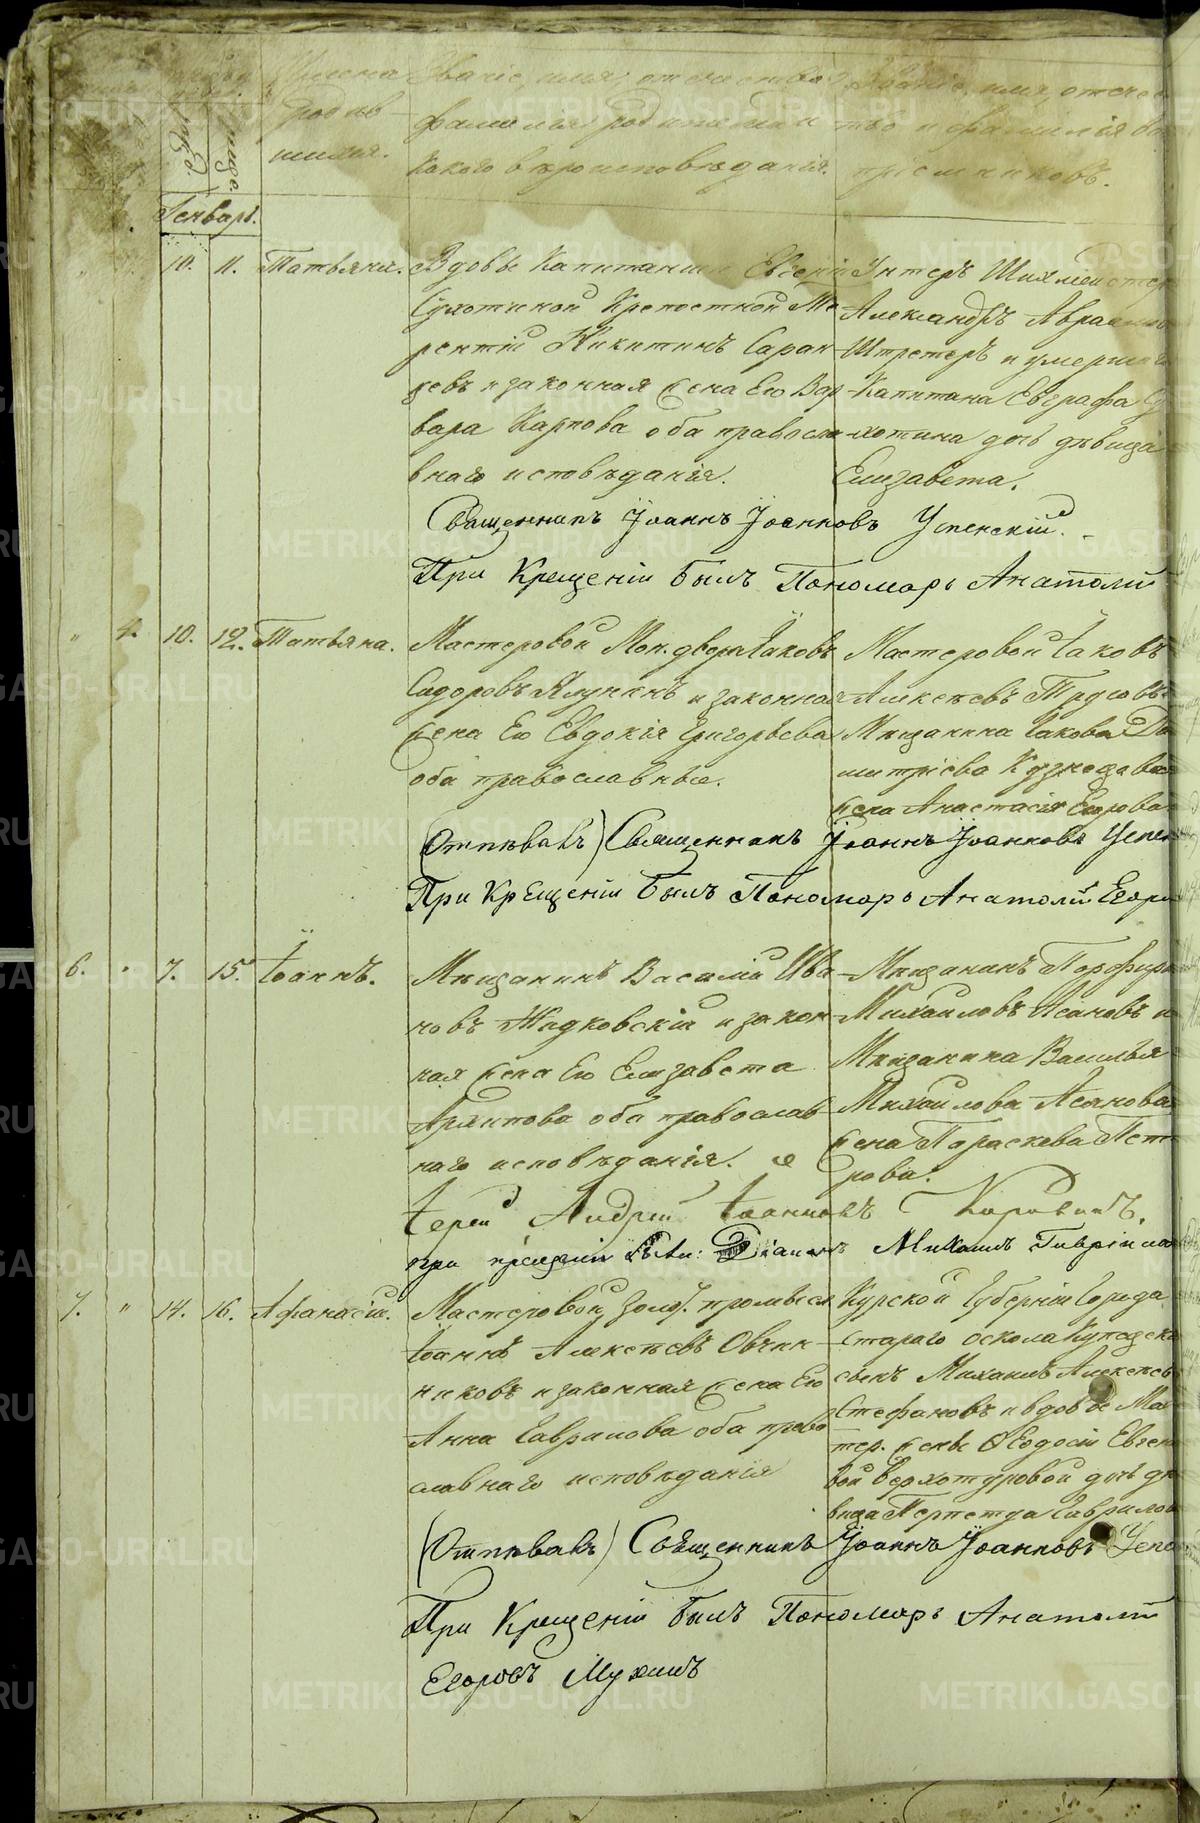 Имена
Званіе, имя, отчество и
Званіе, имя, отчес
родив
фамилія родителей и
тво и фамилія во
шихся.
какого вѣроисповѣданія.
пріемниковъ.
Генварь.
10. 11. Татьяна.
Вдовы Капитанши Евгеніи
Сухотиной Крепостной Ме-
рентій Никитинъ Саран-
цевъ и законная жена Его Вар-
вара Карпова оба правосла-
внаго исповѣданія.
Унтеръ Шихмейстеръ
Александръ Авраамо
Штретеръ и умершаго
Капитана Евграфа Су
хотина дочь дѣвица
Елизавета.
Священникъ Іоаннъ Іоанновъ Успенскій.
При Крещеніи былъ Пономарь Анатолій
" 4. 10. 12. Татьяна.
Мастеровой Мон. двора Іаковъ
Сидоровъ Клунинъ и законная
жена Его Евдокія Григорьева
оба православные.
Мастеровой Іаковъ
Алексѣевъ
Мещанина Іакова Ди
митріева Кузнецова
жена Анастасія Егорова
(Отпѣвалъ) Священникъ Іоаннъ Іоанновъ Успен
При Крещеніи былъ Пономарь Анатолій Егоро
6. " 7. 15. Іоаннъ.
Мѣщанинъ Василій Ива-
новъ Жадковскій и закон-
ная жена Его Елизавета
Архипова оба православ-
наго исповѣданія.
Мещанинъ Порфирій
Михаиловъ Асановъ и
Мещанина Василья
Михайлова Асанова
жена Параскева Пет
рова.
Іерей Андрей Іоанновъ Коровинъ.
при крещеніи былъ: Діаконъ Михаилъ
7. " 14. 16. Афанасій.
Мастеровой Золот. промысл
Іоаннъ Алексѣевъ Овчин-
никовъ и законная жена Его
Анна Гаврилова оба право
славнаго исповѣданія
Курской Губерніи Города
Стараго оскола Купецкій
сынъ Михаилъ Алексѣевъ
Стефановъ и вдовы Мас
тер. жены Ѳеодосіи Евген
вой Верхотуровой дочь дѣ
вица Перпетуа Гаврилов
(Отпѣвалъ) Священникъ Іоаннъ Іоанновъ Успе
При Крещеніи былъ Пономарь Анатолій
Егоровъ Мухинъ
METRIKI.GASO-URAL.RU